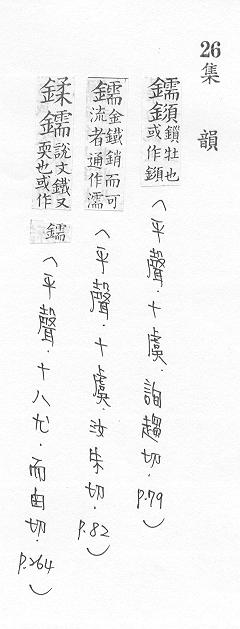 26
集韻
鑐䥗鎖牡也或作䥗(平聲.十虞.詢趨切.P.79)
鑐金鐵銷而可流者通作濡(平聲.十虞.汝朱切.P.82)
鍒鑐說文鐵又耎也或作鑐(平聲.十八尤.而由切.P.264)